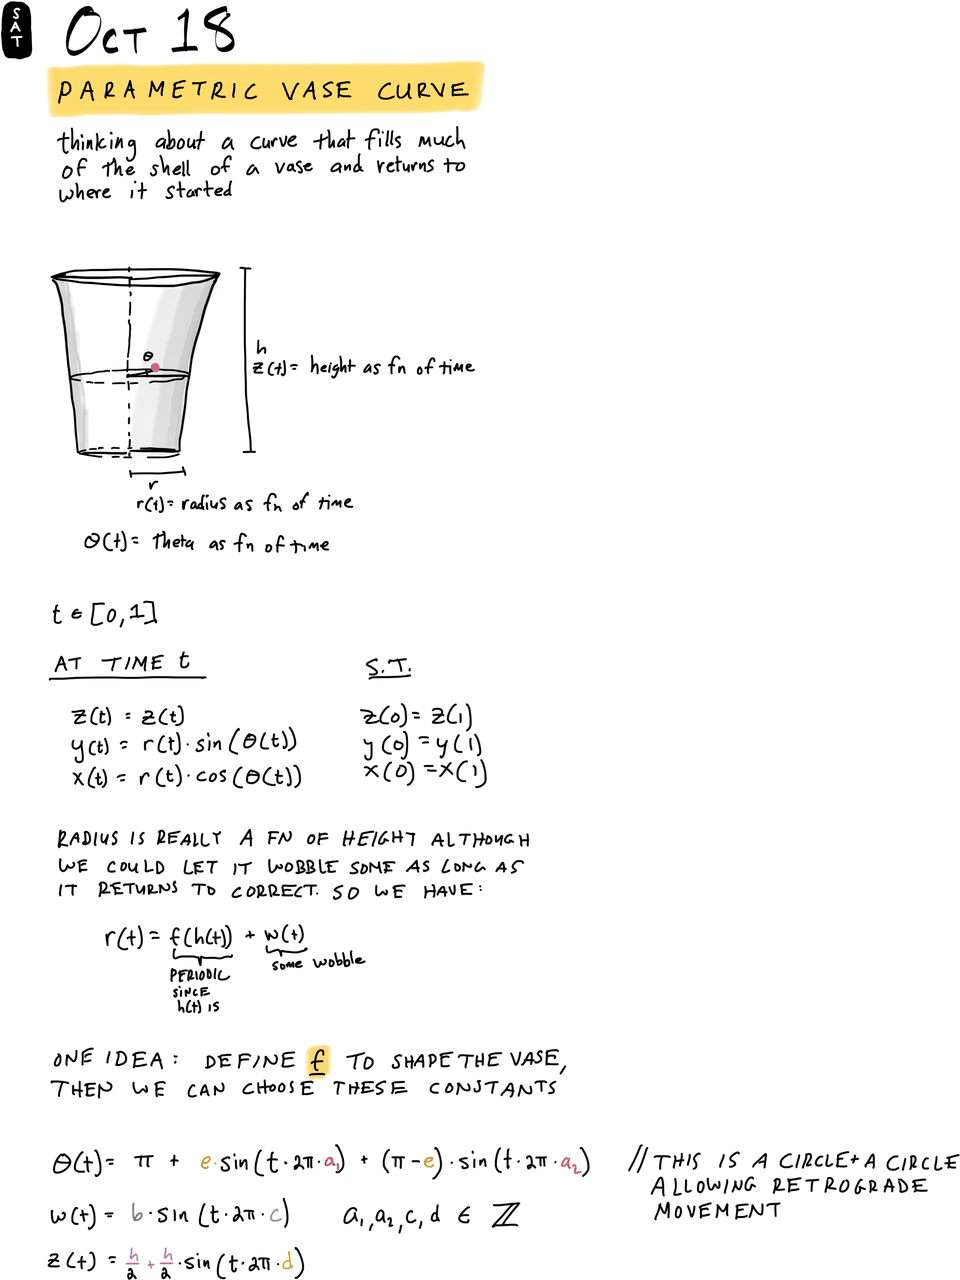 SAT
OCT 18
PARAMETRIC VASE CURVE
thinking about a curve that fills much
of the shell of a vase and returns to
where it started
θ
h
z(t)= height as fn of time
r
r(t)= radius as fn of time
θ(t)= Theta as fn of time
t ∈ [0,1]
AT TIME t
z(t) = z(t)
y(t) = r(t)·sin(θ(t))
x(t) = r(t)·cos(θ(t))
S.T.
z(0) = z(1)
y(0) = y(1)
x(0) = x(1)
RADIUS IS REALLY A FN OF HEIGHT ALTHOUGH
WE COULD LET IT WOBBLE SOME AS LONG AS
IT RETURNS TO CORRECT. SO WE HAVE:
r(t) = f(h(t)) + w(t)
PERIODIC
SINCE
h(t) IS
some wobble
ONE IDEA: DEFINE f TO SHAPE THE VASE,
THEN WE CAN CHOOSE THESE CONSTANTS
θ(t)= π + e·sin(t·2π·a₁) + (π-e)·sin(t·2π·a₂)
// THIS IS A CIRCLE + A CIRCLE
ALLOWING RETROGRADE
MOVEMENT
w(t) = b·sin(t·2π·c) a₁,a₂,c,d ∈ ℤ
z(t) = h/2 + h/2·sin(t·2π·d)